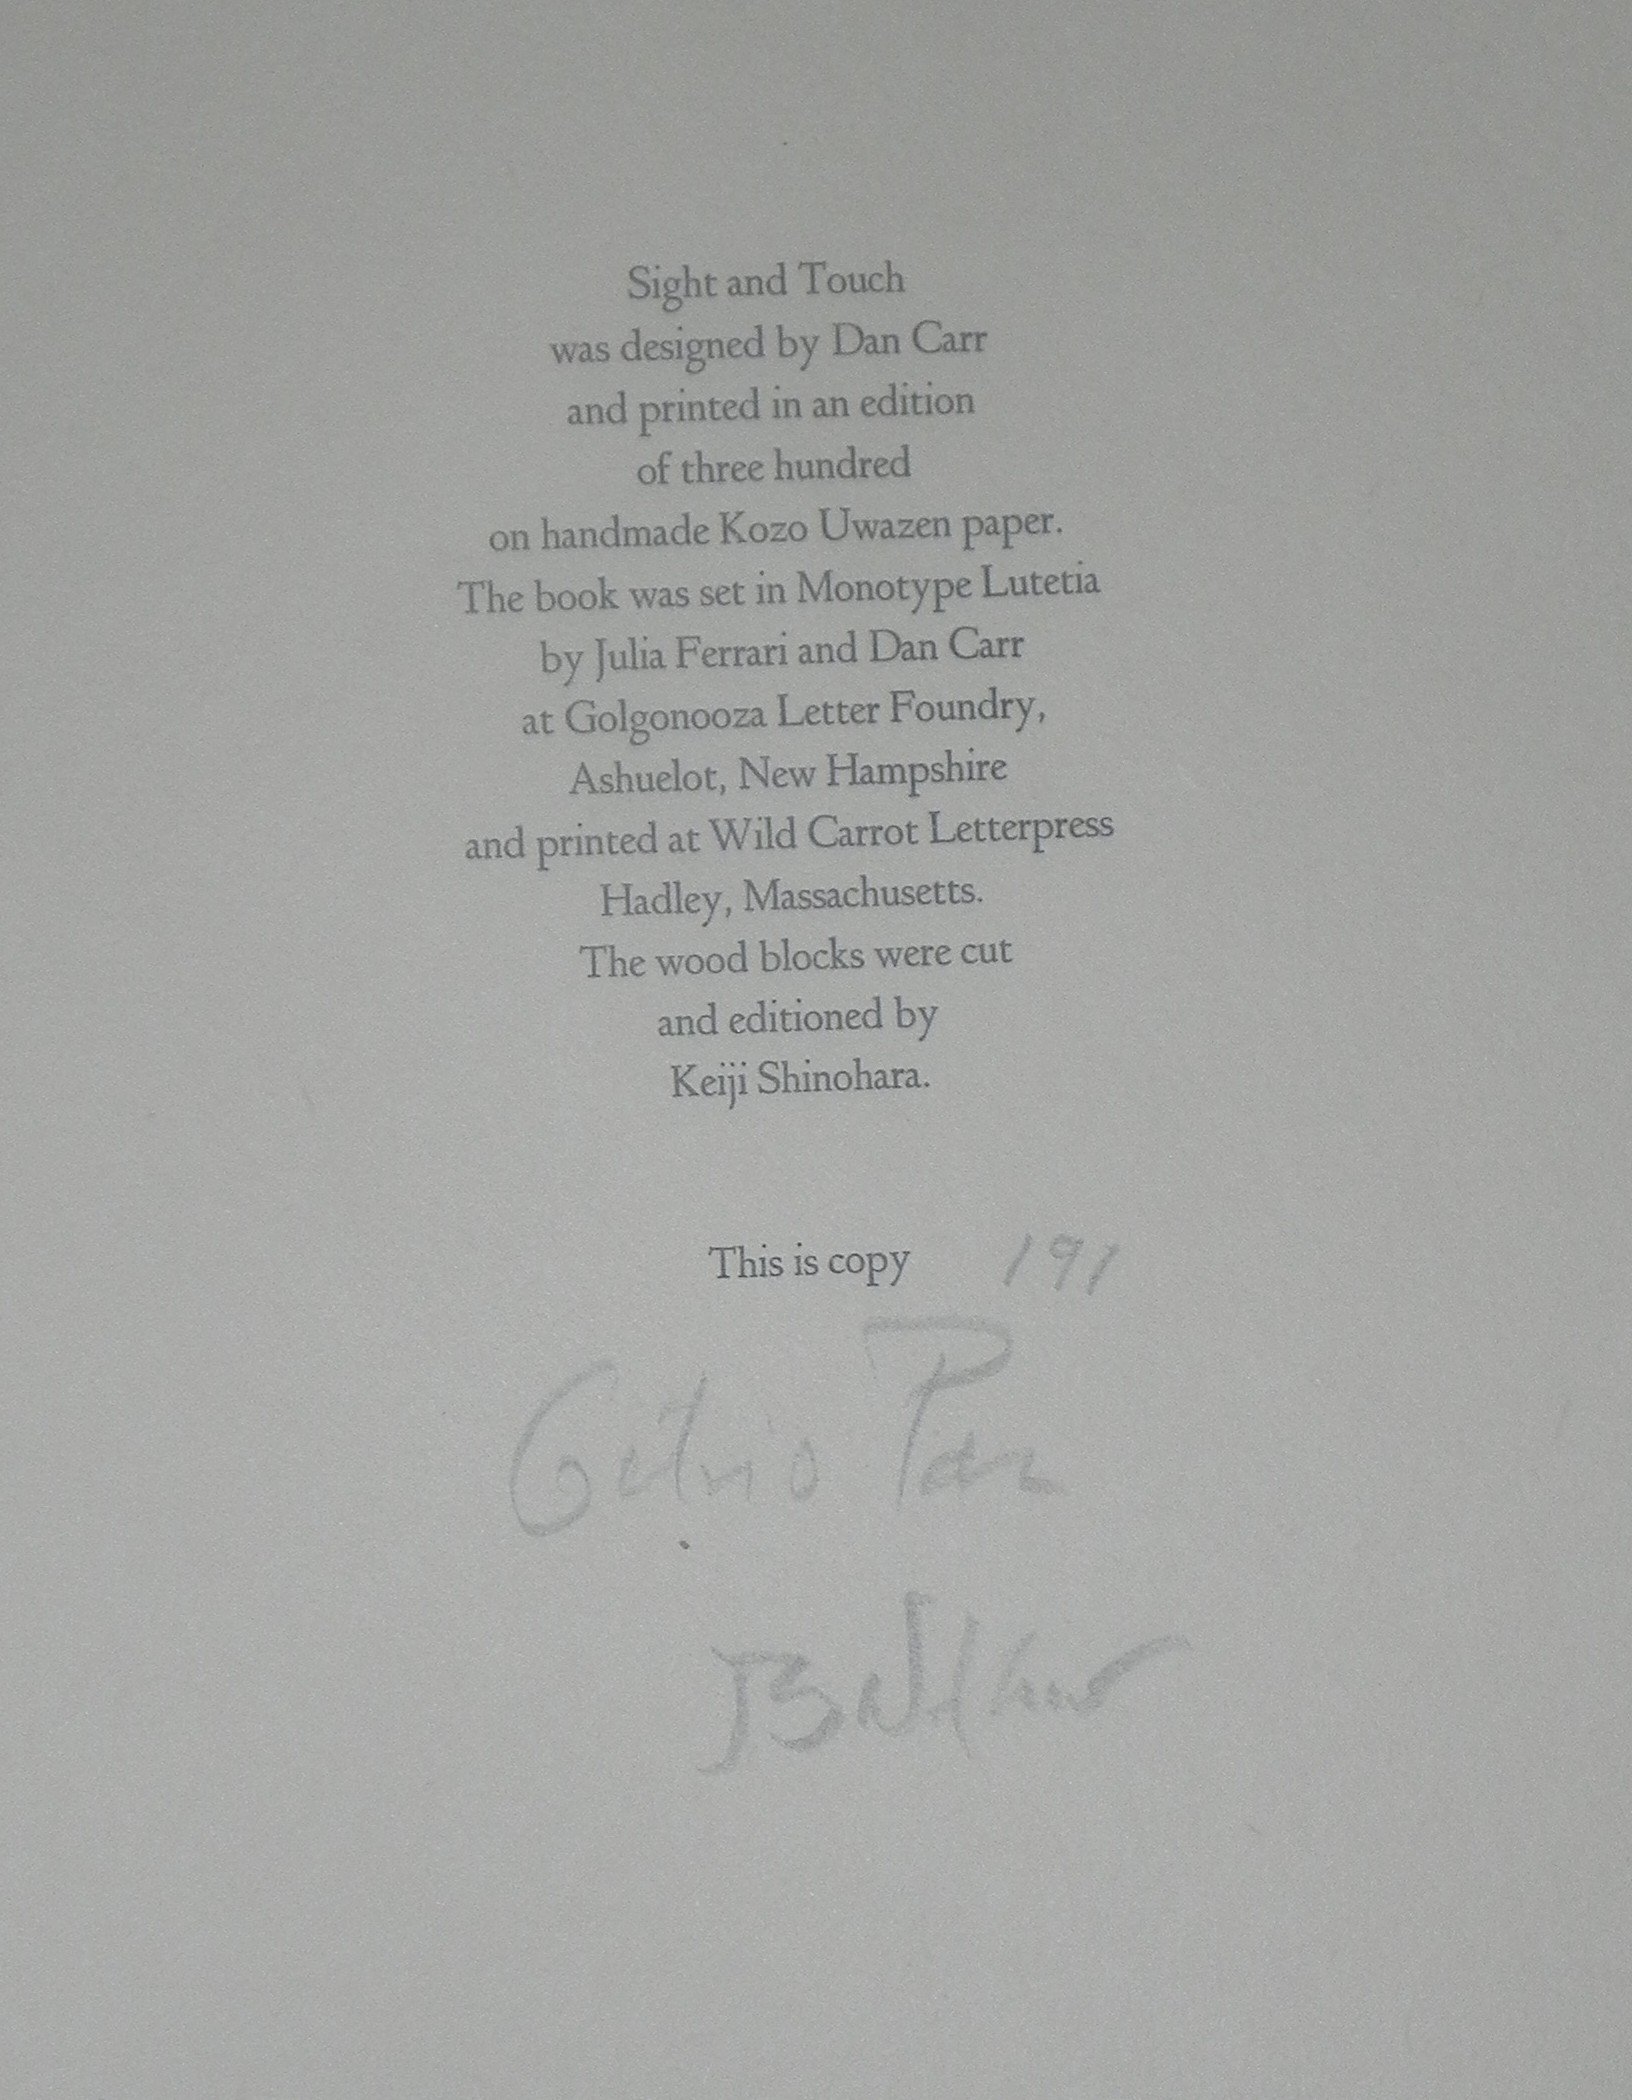 Sight and Touch
was designed by Dan Carr
and printed in an edition
of three hundred
on handmade Kozo Uwazen paper.
The book was set in Monotype Lutetia
by Julia Ferrari and Dan Carr
at Golgonooza Letter Foundry,
Ashuelot, New Hampshire
and printed at Wild Carrot Letterpress
Hadley, Massachusetts.
The wood blocks were cut
and editioned by
Keiji Shinohara.
This is copy 191
Octavio Paz
Balthus